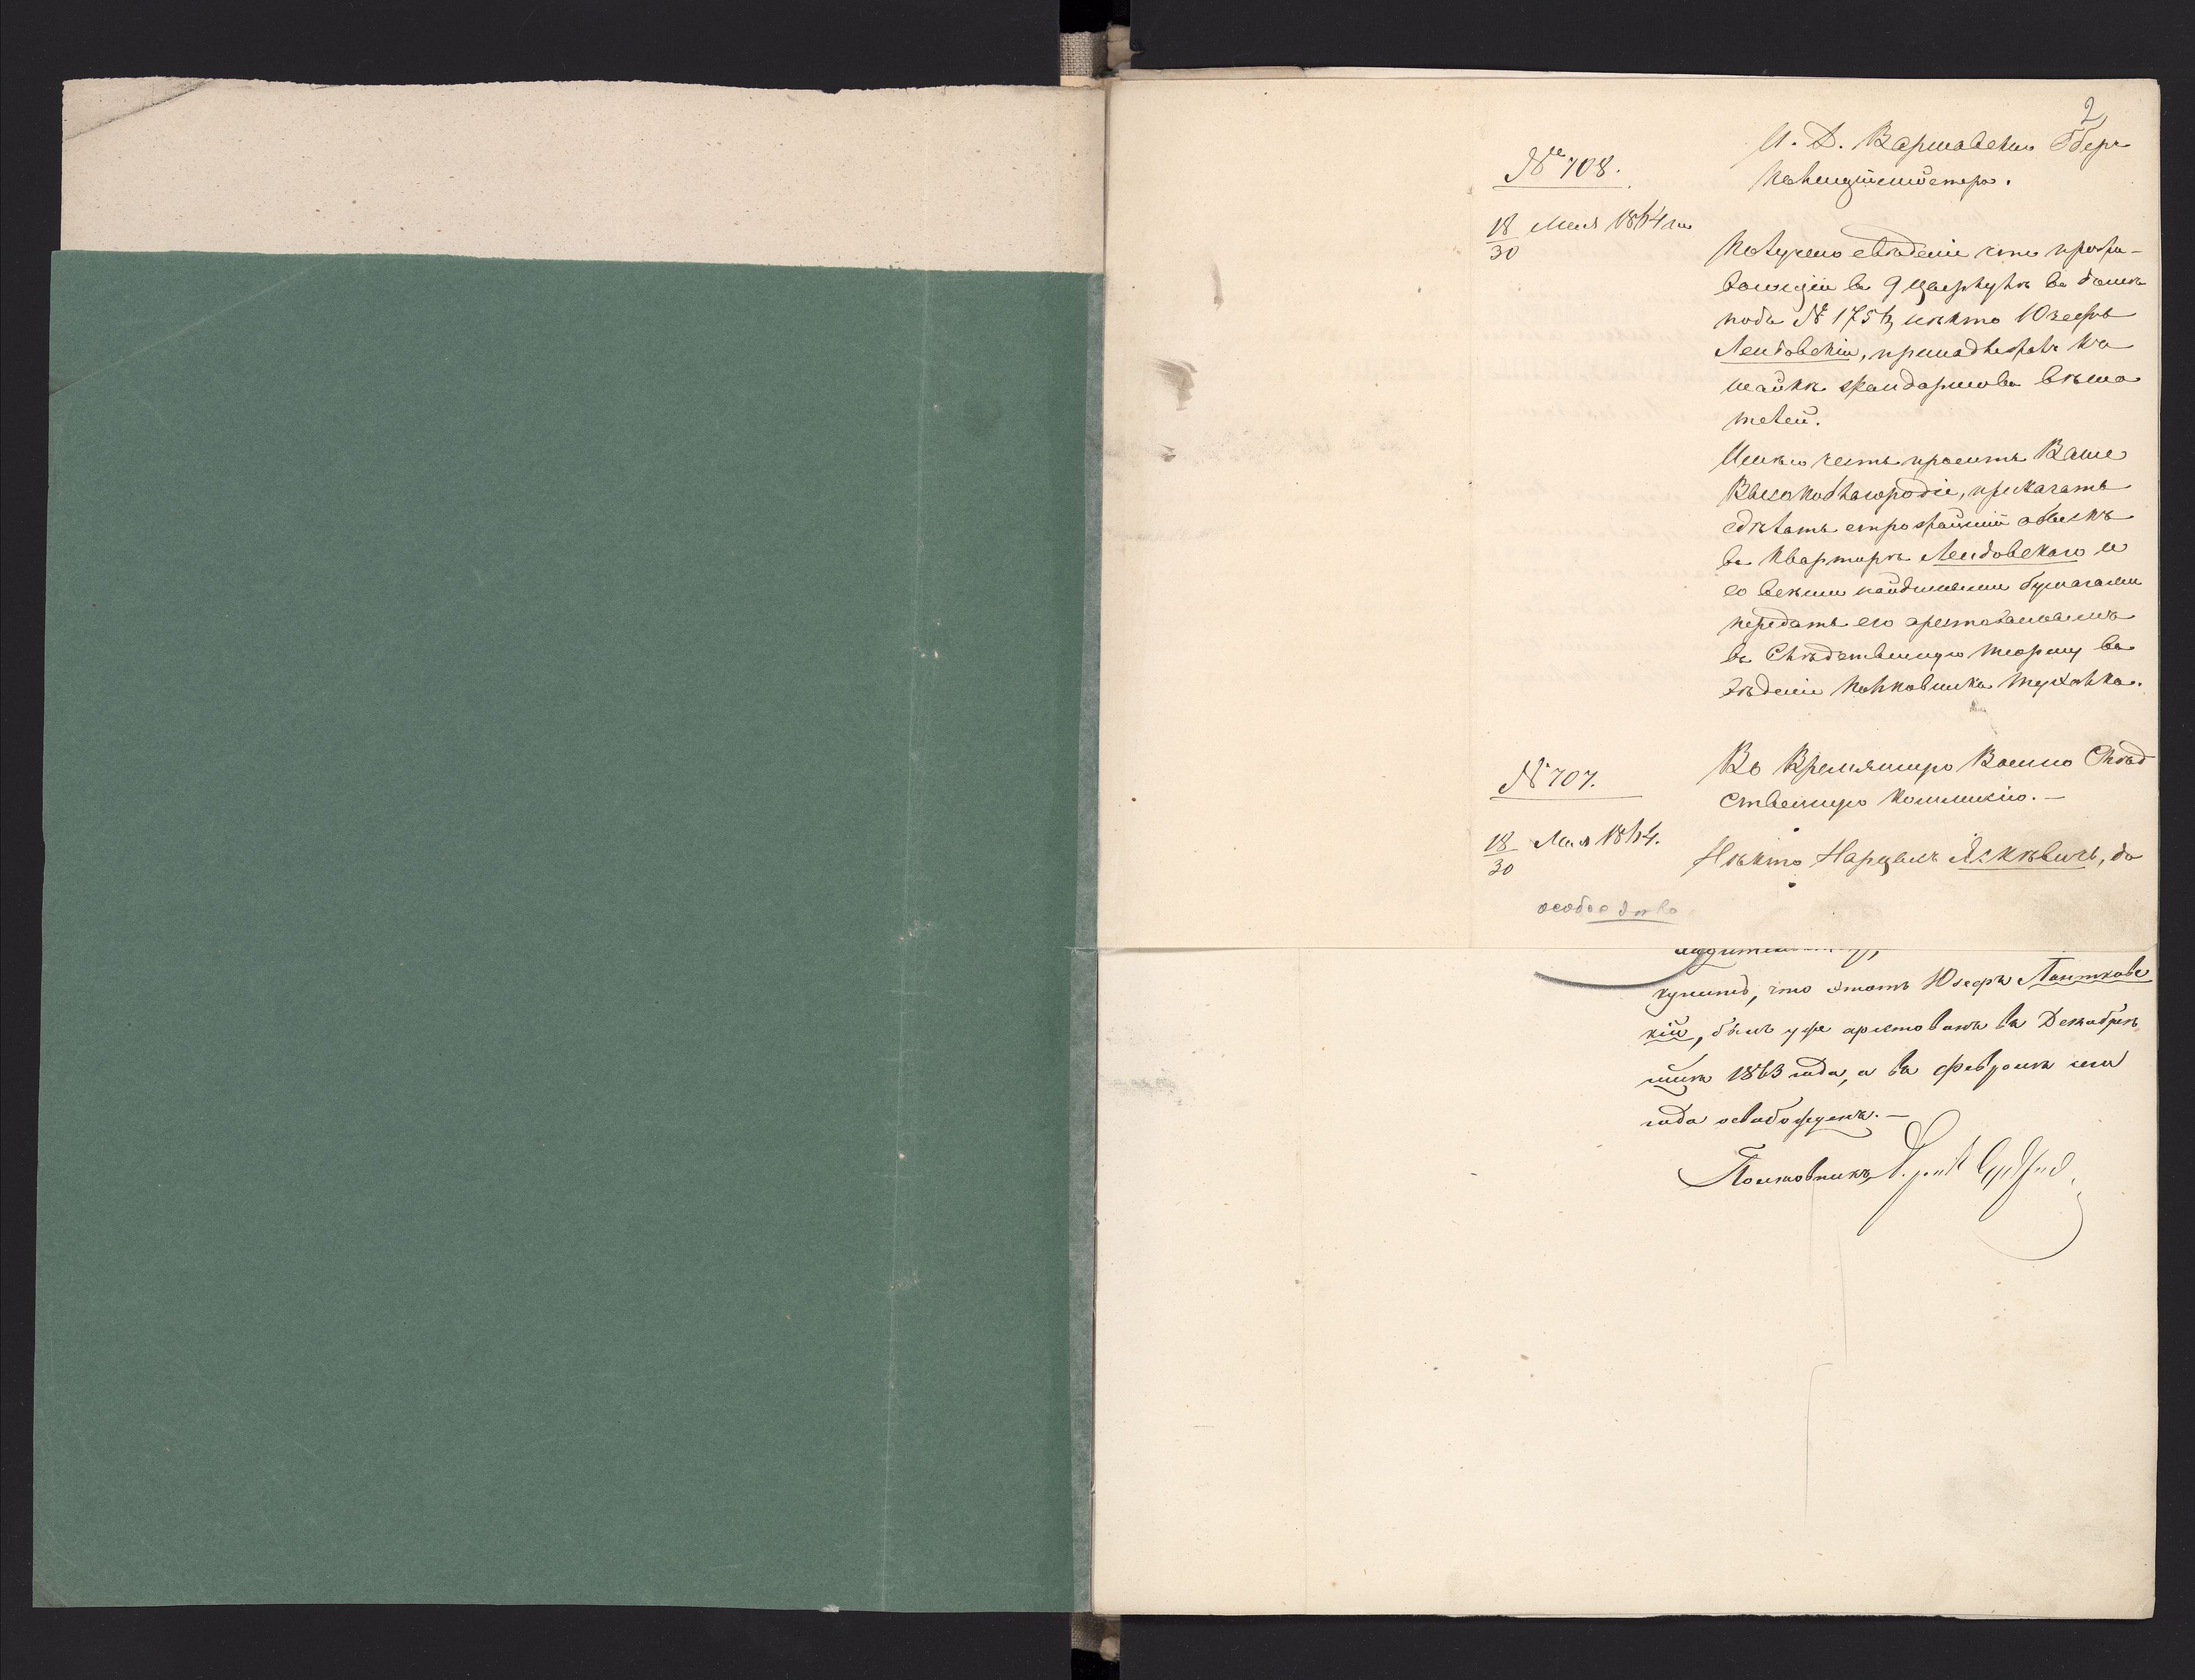 2
И. Д. Варшавскаго Обер
Полицiймейстера.
№ 708.
18/30 Мая 1864 г.
Получено свѣденiе что прожи-
вающiй въ 9 Циркулѣ въ домѣ
подъ № 175 нѣкто Юзефъ
Лендовскiй, принадлежалъ къ
шайкѣ жандармовъ вѣша
телей.
Имѣю честь просить Ваше
Высокоблагородiе, приказать
сдѣлать строжайшiй обыскъ
въ квартирѣ Лендовскаго и
со всѣми найденными бумагами
передать его арестованнымъ
въ Слѣдственную тюрьму въ
вѣденiе Полковника Тухолка.
№ 707.
18/30 Мая 1864.
особое дѣло
Во Временную Военно Слѣд
ственную Коммисiю.—
Нѣкто Нарцызъ Яскевичъ, до
купить, что этотъ Юзефъ Лентковс
кiй, былъ уже арестованъ въ Декабрѣ
1863 года, а въ Февралѣ сего
года освобожденъ.—
Полковникъ